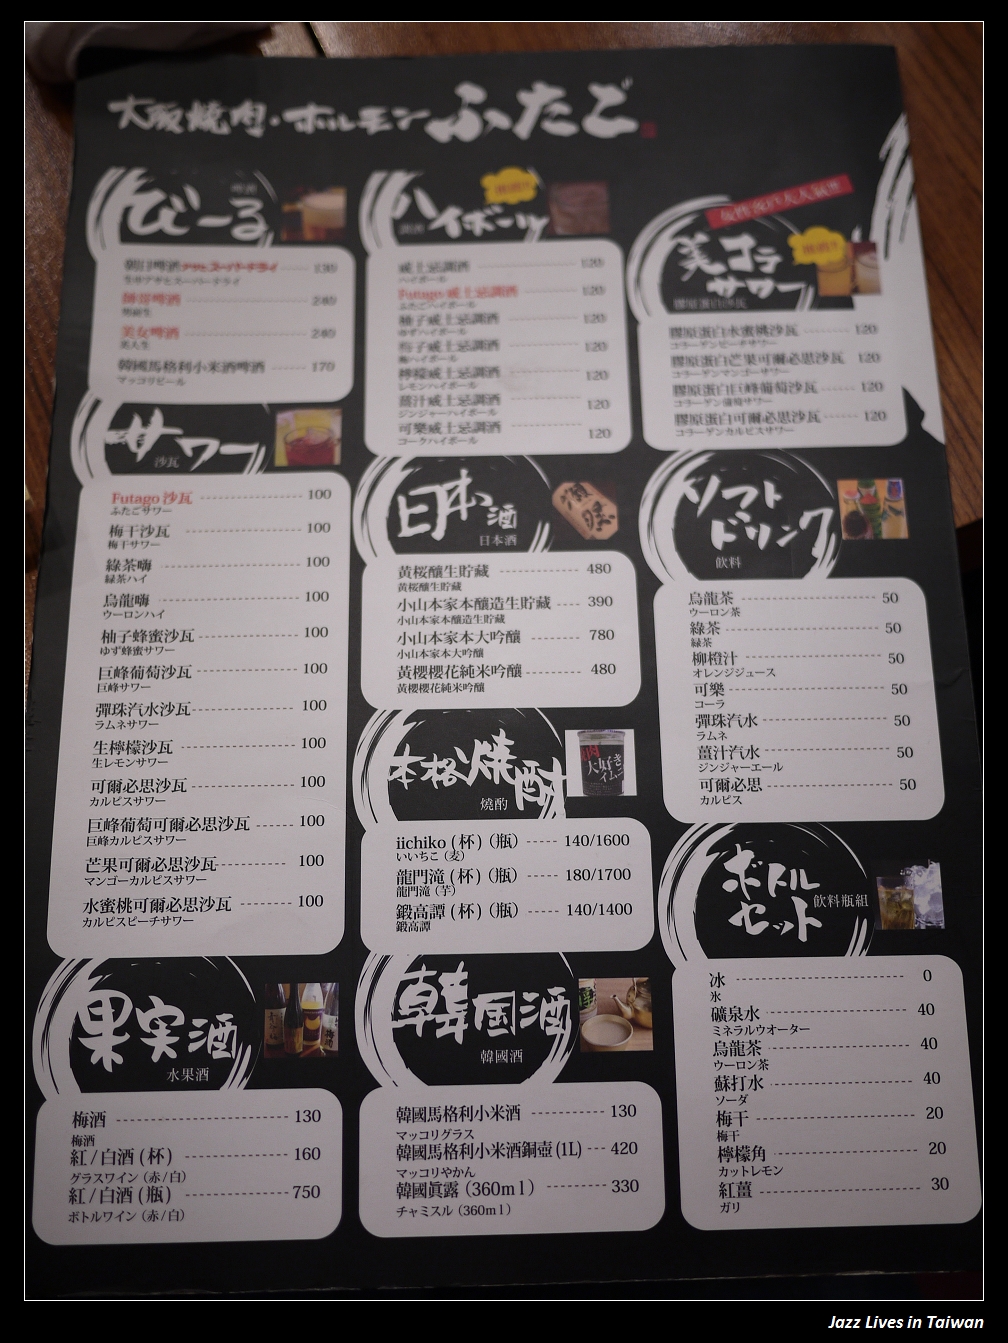 大阪焼肉・ホルモン ふたご
びーる
啤酒
朝日啤酒アサヒスーパードライ 130
生※アサヒスーパードライ
240
美女啤酒 240
美人生
韓國馬格利小米酒啤酒 170
マッコリビール
サワー
沙瓦
Futago 沙瓦 100
ふたごサワー
梅干沙瓦 100
梅干サワー
綠茶嗨 100
緑茶ハイ
烏龍嗨 100
ウーロンハイ
柚子蜂蜜沙瓦 100
ゆず蜂蜜サワー
巨峰葡萄沙瓦 100
巨峰サワー
彈珠汽水沙瓦 100
ラムネサワー
生檸檬沙瓦 100
生レモンサワー
可爾必思沙瓦 100
カルピスサワー
巨峰葡萄可爾必思沙瓦 100
巨峰カルピスサワー
芒果可爾必思沙瓦 100
マンゴーカルピスサワー
水蜜桃可爾必思沙瓦 100
カルピスピーチサワー
果実酒
水果酒
梅酒 130
梅酒
紅/白酒(杯) 160
グラスワイン(赤/白)
紅/白酒(瓶) 750
ボトルワイン(赤/白)
ハイボール
調酒
威士忌調酒 120
ハイボール
Futago 威士忌調酒 120
ふたごハイボール
柚子威士忌調酒 120
ゆずハイボール
梅子威士忌調酒 120
梅ハイボール
檸檬威士忌調酒 120
レモンハイボール
薑汁威士忌調酒 120
ジンジャーハイボール
可樂威士忌調酒 120
コークハイボール
日本酒
日本酒
黃桜釀生貯藏 480
黄桜醸生貯蔵
小山本家本釀造生貯藏 390
小山本家本醸造生貯蔵
小山本家本大吟釀 780
小山本家本大吟醸
黃櫻櫻花純米吟釀 480
黄櫻櫻花純米吟醸
本格焼酎
燒酌
iichiko (杯) (瓶) 140/1600
いいちこ(麦)
龍門滝 (杯) (瓶) 180/1700
龍門滝(芋)
鍛高譚 (杯) (瓶) 140/1400
鍛高譚
韓国酒
韓國酒
韓國馬格利小米酒 130
マッコリグラス
韓國馬格利小米酒銅壺 (1L) 420
マッコリやかん
韓國眞露 (360ml) 330
チャミスル (360ml)
女性客戶大人氣!!
美コラサワー
膠原蛋白沙瓦
膠原蛋白水蜜桃沙瓦 120
コラーゲンピーチサワー
膠原蛋白芒果可爾必思沙瓦 120
コラーゲンマンゴーサワー
膠原蛋白巨峰葡萄沙瓦 120
コラーゲン葡萄サワー
膠原蛋白可爾必思沙瓦 120
コラーゲンカルピスサワー
ソフトドリンク
飲料
烏龍茶 50
ウーロン茶
綠茶 50
緑茶
柳橙汁 50
オレンジジュース
可樂 50
コーラ
彈珠汽水 50
ラムネ
薑汁汽水 50
ジンジャーエール
可爾必思 50
カルピス
ボトルセット
飲料瓶組
冰 0
氷
礦泉水 40
ミネラルウオーター
烏龍茶 40
ウーロン茶
蘇打水 40
ソーダ
梅干 20
梅干
檸檬角 20
カットレモン
紅薑 30
ガリ
Jazz Lives in Taiwan